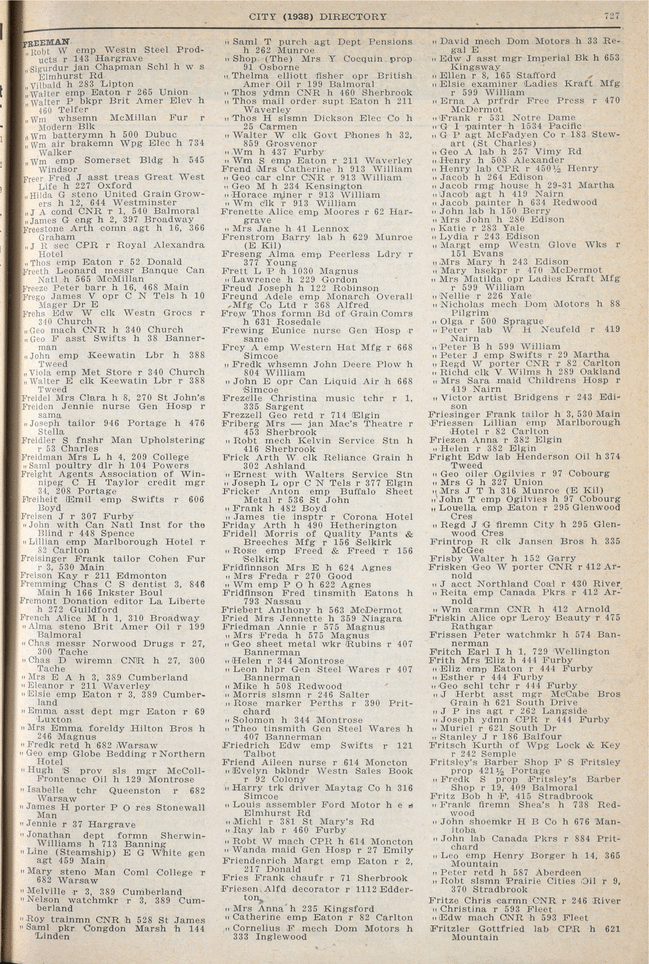 CITY (1938) DIRECTORY 727
FREEMAN
" Robt W emp Westn Steel Prod-
ucts r 143 Hargrave
" Sigurdur jan Chapman Schl h w s
Elmhurst Rd
" Vilbald h 283 Lipton
" Walter emp Eaton r 265 Union
" Walter P bkpr Brit Amer Elev h
460 Telfer
" Wm whsemn McMillan Fur r
Modern Blk
" Wm batterymn h 500 Dubuc
" Wm air brakemn Wpg Elec h 734
Walker
" Wm emp Somerset Bldg h 545
Windsor
Freer Fred J asst treas Great West
Life h 227 Oxford
" Hilda G steno United Grain Grow-
ers h 12, 644 Westminster
" J A cond CNR r 1, 540 Balmoral
" James G eng h 2, 397 Broadway
Freestone Arth comn agt h 16, 366
Graham
" J R sec CPR r Royal Alexandra
Hotel
" Thos emp Eaton r 52 Donald
Freeth Leonard messr Banque Can
Natl h 565 McMillan
Freeze Peter barr h 16, 468 Main
Frego James V opr C N Tels h 10
Mager Dr E
Frehs Edw W clk Westn Grocs r
340 Church
" Geo mach CNR h 340 Church
" Geo F asst Swifts h 38 Banner-
man
" John emp Keewatin Lbr h 388
Tweed
" Viola emp Met Store r 340 Church
" Walter E clk Keewatin Lbr r 388
Tweed
Freidel Mrs Clara h 8, 270 St John's
Freiden Jennie nurse Gen Hosp r
same
" Joseph tailor 946 Portage h 476
Stella
Freidler S fnshr Man Upholstering
r 53 Charles
Freidman Mrs L h 4, 209 College
" Saml poultry dlr h 104 Powers
Freight Agents Association of Win-
nipeg C H Taylor credit mgr
34, 208 Portage
Freiheit Emil emp Swifts r 606
Boyd
Freisen J r 307 Furby
" John with Can Natl Inst for the
Blind r 448 Spence
" Lillian emp Marlborough Hotel r
82 Carlton
Freisinger Frank tailor Cohen Fur
r 3, 530 Main
Freison Kay r 211 Edmonton
Fremming Chas C S dentist 3, 846
Main h 166 Inkster Boul
Fremont Donation editor La Liberte
h 272 Guildford
French Alice M h 1, 310 Broadway
" Alma steno Brit Amer Oil r 199
Balmoral
" Chas messr Norwood Drugs r 27,
300 Tache
" Chas D wiremn CNR h 27, 300
Tache
" Mrs E A h 3, 389 Cumberland
" Eleanor r 211 Waverley
" Elsie emp Eaton r 3, 389 Cumber-
land
" Emma asst dept mgr Eaton r 69
Luxton
" Mrs Emma foreldy Hilton Bros h
246 Magnus
" Fredk retd h 682 Warsaw
" Geo emp Globe Bedding r Northern
Hotel
" Hugh S prov sls mgr McColl-
Frontenac Oil h 129 Montrose
" Isabelle tchr Queenston r 682
Warsaw
" James H porter P O res Stonewall
Man
" Jennie r 37 Hargrave
" Jonathan dept formn Sherwin-
Williams h 713 Banning
" Line (Steamship) E G White gen
agt 459 Main
" Mary steno Man Coml College r
682 Warsaw
" Melville r 3, 389 Cumberland
" Nelson watchmkr r 3, 389 Cum-
berland
" Roy trainmn CNR h 528 St James
" Saml pkr Congdon Marsh h 144
Linden
" Saml T purch agt Dept Pensions
h 262 Munroe
" Shop (The) Mrs Y Cocquin prop
91 Osborne
" Thelma elliott fisher opr British
Amer Oil r 199 Balmoral
" Thos ydmn CNR h 460 Sherbrook
" Thos mail order supt Eaton h 211
Waverley
" Thos H slsmn Dickson Elec Co h
25 Carmen
" Walter W clk Govt Phones h 32,
859 Grosvenor
" Wm h 437 Furby
" Wm S emp Eaton r 211 Waverley
Frend Mrs Catherine h 913 William
" Geo car clnr CNR r 913 William
" Geo M h 234 Kensington
" Horace mjner r 913 William
" Wm clk r 913 William
Frenette Alice emp Moores r 62 Har-
grave
" Mrs Jane h 41 Lennox
Frenstrom Barry lab h 629 Munroe
(E Kil)
Freseng Alma emp Peerless Ldry r
377 Young
Frett L P h 1030 Magnus
" Lawrence h 229 Gordon
Freud Joseph h 122 Robinson
Freund Adele emp Monarch Overall
Mfg Co Ltd r 368 Alfred
Frew Thos formn Bd of Grain Comrs
h 631 Rosedale
Frewing Eunice nurse Gen Hosp r
same
Frey A emp Western Hat Mfg r 668
Simcoe
" Fredk whsemn John Deere Plow h
804 William
" John E opr Can Liquid Air h 668
Simcoe
Frezelle Christina music tchr r 1,
335 Sargent
Frezzell Geo retd r 714 Elgin
Friberg Mrs — jan Mac's Theatre r
453 Sherbrook
" Robt mech Kelvin Service Stn h
416 Sherbrook
Frick Arth W clk Reliance Grain h
302 Ashland
" Ernest with Walters Service Stn
" Joseph L opr C N Tels r 377 Elgin
Fricker Anton emp Buffalo Sheet
Metal r 536 St John
" Frank h 482 Boyd
" James tie insptr r Corona Hotel
Friday Arth h 490 Hetherington
Fridell Morris of Quality Pants &
Breeches Mfg r 156 Selkirk
" Rose emp Freed & Freed r 156
Selkirk
Fridfinnson Mrs E h 624 Agnes
" Mrs Freda r 270 Good
" Wm emp P O h 622 Agnes
Fridfinson Fred tinsmith Eatons h
793 Nassau
Friebert Anthony h 563 McDermot
Fried Mrs Jennette h 359 Niagara
Friedman Annie r 575 Magnus
" Mrs Freda h 575 Magnus
" Geo sheet metal wkr Rubins r 407
Bannerman
" Helen r 344 Montrose
" Leon hlpr Gen Steel Wares r 407
Bannerman
" Mike h 508 Redwood
" Morris slsmn r 246 Salter
" Rose marker Perths r 390 Prit-
chard
" Solomon h 344 Montrose
" Theo tinsmith Gen Steel Wares h
407 Bannerman
Friedrich Edw emp Swifts r 121
Talbot
Friend Aileen nurse r 614 Moncton
" Evelyn bkbndr Westn Sales Book
r 92 Colony
" Harry trk driver Maytag Co h 316
Simcoe
" Louis assembler Ford Motor h e s
Elmhurst Rd
" Michl r 381 St Mary's Rd
" Ray lab r 460 Furby
" Robt W mach CPR h 614 Moncton
" Wanda maid Gen Hosp r 27 Emily
Friendenrich Margt emp Eaton r 2,
217 Donald
Fries Frank chaufr r 71 Sherbrook
Friesen Alfd decorator r 1112 Edder-
ton
" Mrs Anna h 235 Kingsford
" Catherine emp Eaton r 82 Carlton
" Cornelius F mech Dom Motors h
333 Inglewood
" David mech Dom Motors h 33 Re-
gal E
" Edw J asst mgr Imperial Bk h 653
Kingsway
" Ellen r 8, 165 Stafford
" Elsie examiner Ladies Kraft Mfg
r 599 William
" Erna A prfrdr Free Press r 470
McDermot
" Frank r 531 Notre Dame
" G I painter h 1534 Pacific
" G P agt McFadyen Co r 183 Stew-
art (St Charles)
" Geo A lab h 257 Vimy Rd
" Henry h 508 Alexander
" Henry lab CPR r 450½ Henry
" Jacob h 264 Edison
" Jacob rmg house h 29-31 Martha
" Jacob agt h 419 Nairn
" Jacob painter h 634 Redwood
" John lab h 150 Berry
" Mrs John h 280 Edison
" Katie r 283 Yale
" Lydia r 243 Edison
" Margt emp Westn Glove Wks r
151 Evans
" Mrs Mary h 243 Edison
" Mary hsekpr r 470 McDermot
" Mrs Matilda opr Ladies Kraft Mfg
r 599 William
" Nellie r 226 Yale
" Nicholas mech Dom Motors h 88
Pilgrim
" Olga r 500 Sprague
" Peter lab W H Neufeld r 419
Nairn
" Peter B h 599 William
" Peter J emp Swifts r 29 Martha
" Regd W porter CNR r 82 Carlton
" Richd clk V Wilms h 289 Oakland
" Mrs Sara maid Childrens Hosp r
419 Nairn
" Victor artist Bridgens r 243 Edi-
son
Friesinger Frank tailor h 3, 530 Main
Friessen Lillian emp Marlborough
Hotel r 82 Carlton
Friezen Anna r 382 Elgin
" Helen r 382 Elgin
Fright Edw lab Henderson Oil h 374
Tweed
" Geo oiler Ogilvies r 97 Cobourg
" Mrs G h 327 Union
" Mrs J T h 316 Munroe (E Kil)
" John T emp Ogilvies h 97 Cobourg
" Louella emp Eaton r 295 Glenwood
Cres
" Regd J G firemn City h 295 Glen-
wood Cres
Frintrop R clk Jansen Bros h 335
McGee
Frisby Walter h 152 Garry
Frisken Geo W porter CNR r 412 Ar-
nold
" J acct Northland Coal r 430 River
" Reita emp Canada Pkrs r 412 Ar-
nold
" Wm carmn CNR h 412 Arnold
Friskin Alice opr Leroy Beauty r 475
Rathgar
Frissen Peter watchmkr h 574 Ban-
nerman
Fritch Earl I h 1, 729 Wellington
Frith Mrs Eliz h 444 Furby
" Eliz emp Eaton r 444 Furby
" Esther r 444 Furby
" Geo schl tchr r 444 Furby
" J Herbt asst mgr McCabe Bros
Grain h 621 South Drive
" J P ins agt r 262 Langside
" Joseph ydmn CPR r 444 Furby
" Muriel r 621 South Dr
" Stanley J r 186 Balfour
Fritsch Kurth of Wpg Lock & Key
r 242 Semple
Fritsley's Barber Shop F S Fritsley
prop 421½ Portage
" Fredk S prop Fritsley's Barber
Shop r 19, 409 Balmoral
Fritz Bob h F, 415 Stradbrook
" Frank firemn Shea's h 738 Red-
wood
" John shoemkr H B Co h 676 Man-
itoba
" John lab Canada Pkrs r 884 Prit-
chard
" Leo emp Henry Borger h 14, 365
Mountain
" Peter retd h 587 Aberdeen
" Robt slsmn Prairie Cities Oil r 9,
370 Stradbrook
Fritze Chris carmn CNR r 246 River
" Christina r 593 Fleet
" Edw mach CNR h 593 Fleet
Fritzler Gottfried lab CPR h 621
Mountain